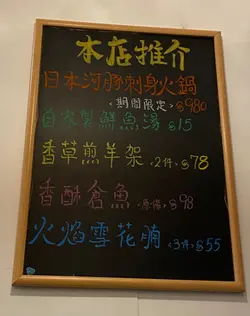 本店推介
日本河豚刺身火鍋
<期間限定> $980
自家製鮮魚湯 $15
香草煎羊架 <2件> $78
香酥倉魚 <原條> $98
火焰雪花腩 <3件> $55